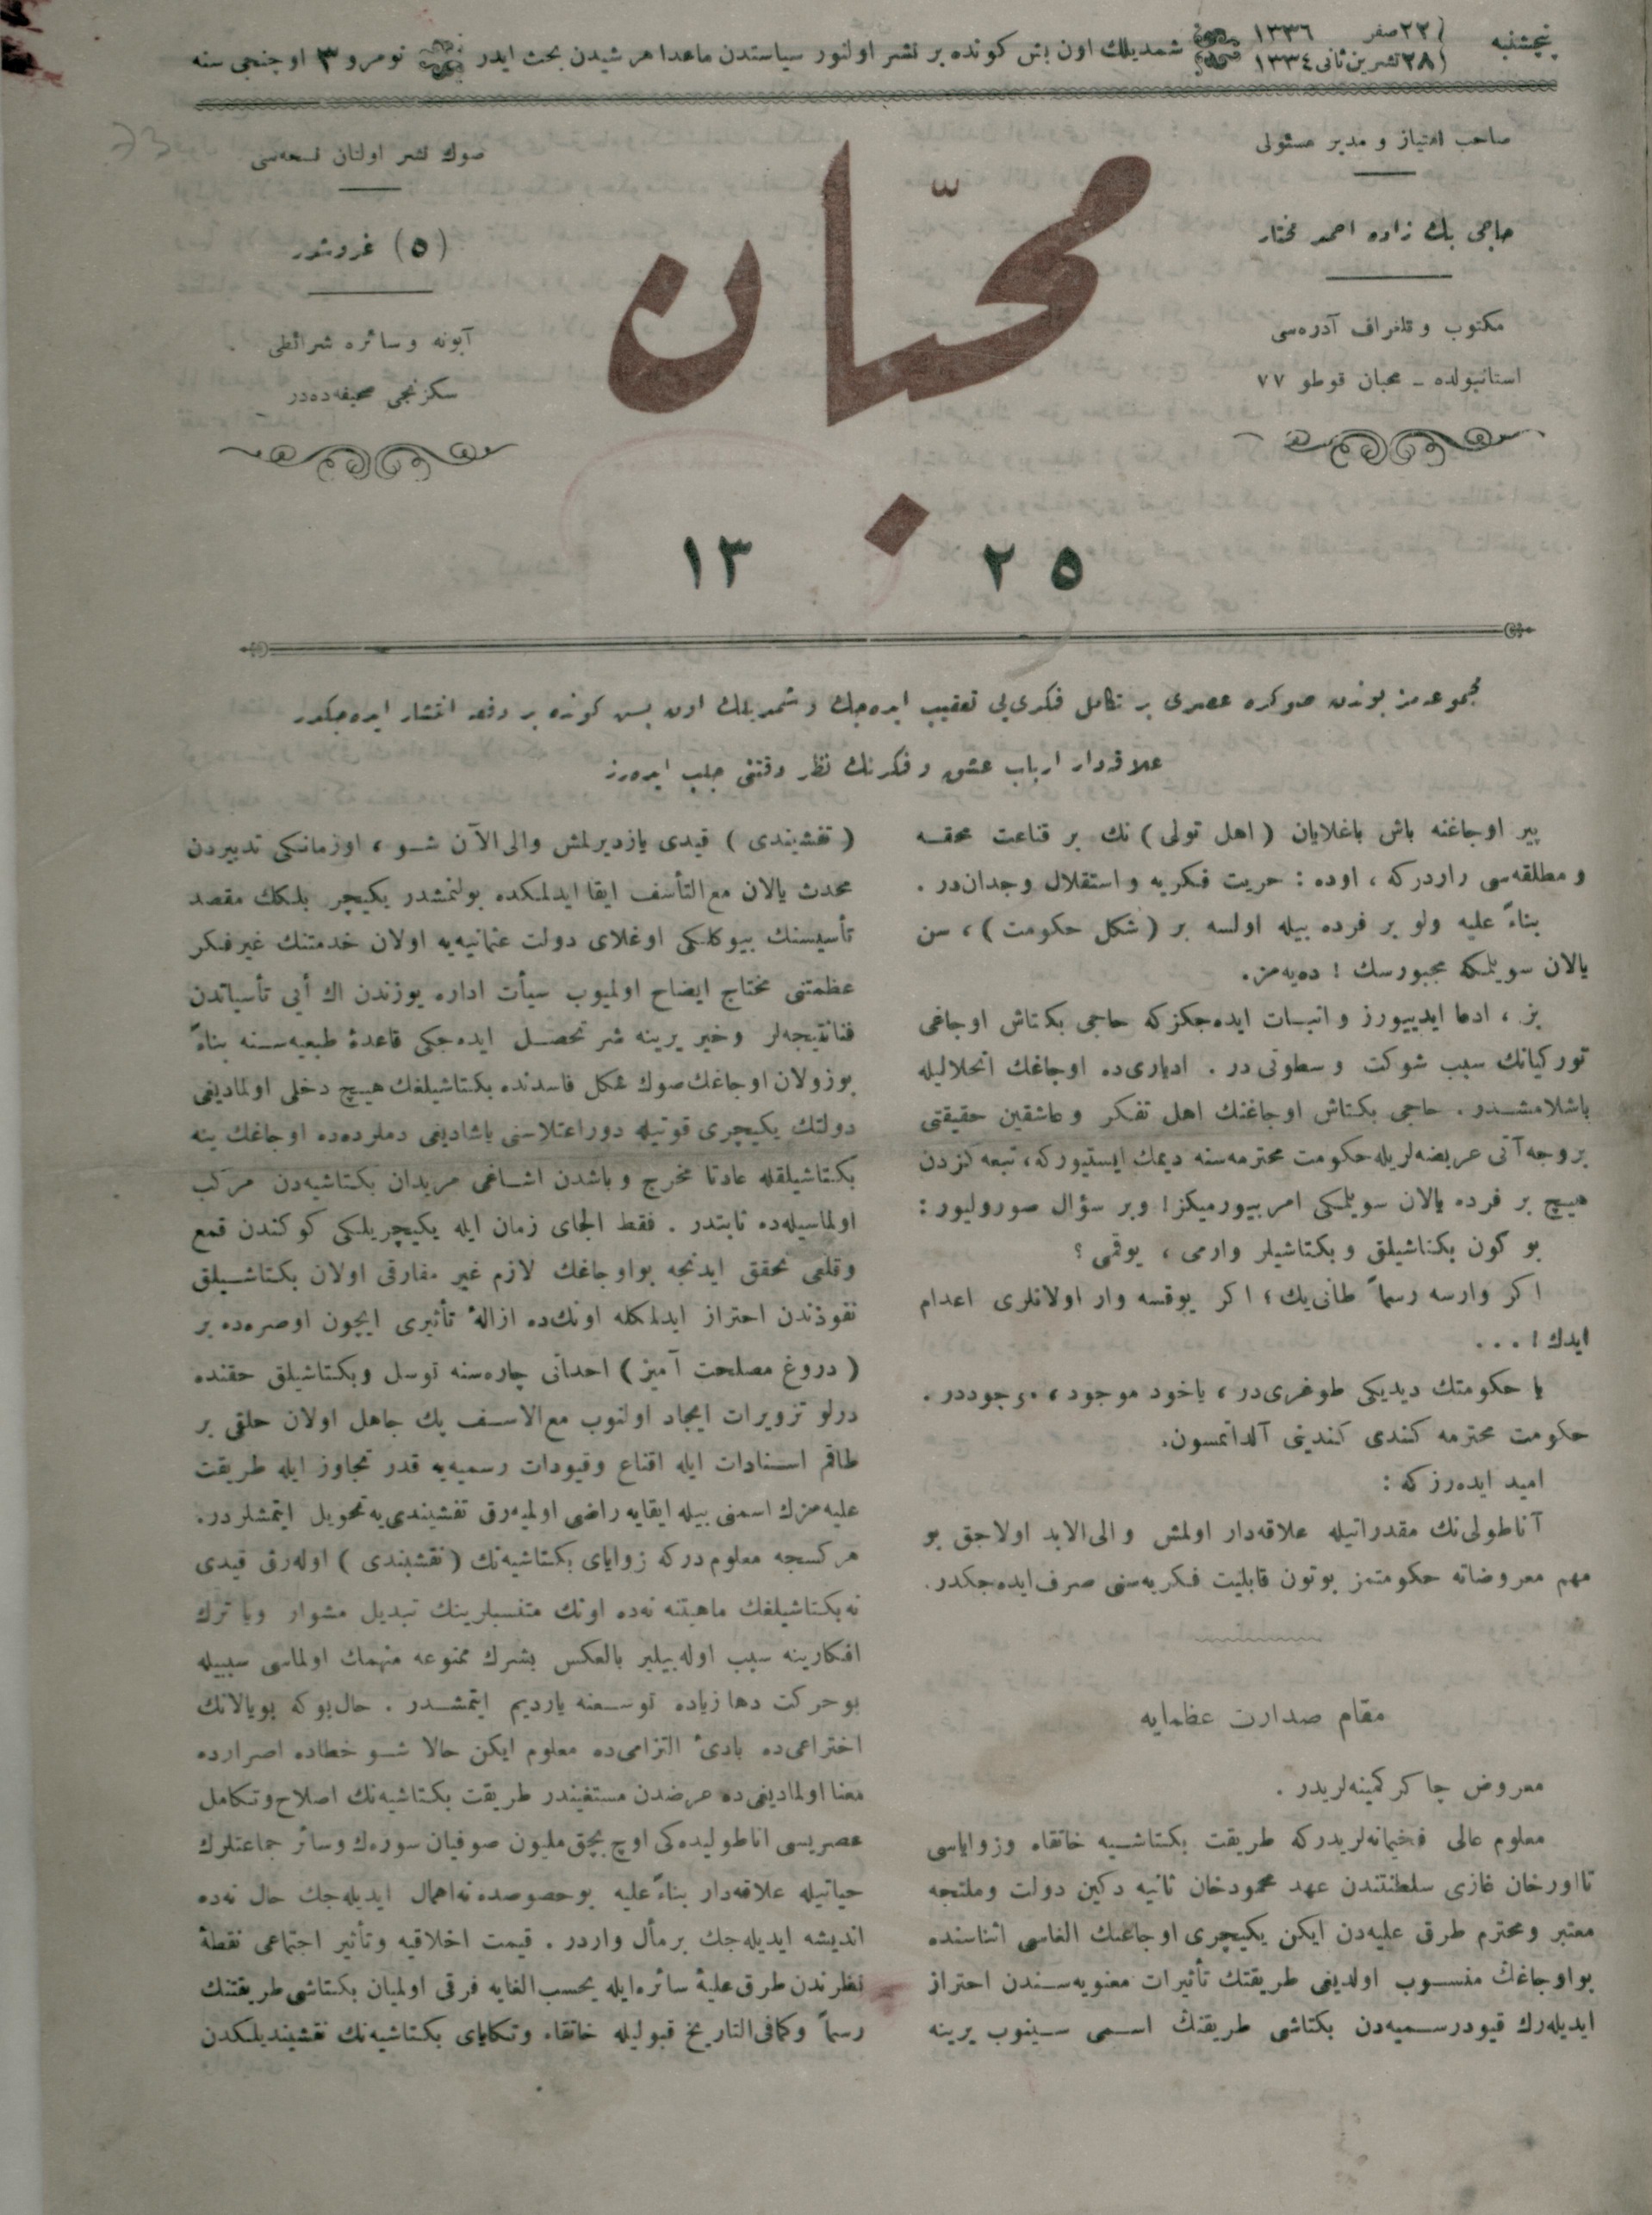 پنجشنبه
٢٢ صفر ١٣٣٦
٢٨ تشرین ثانی ١٣٣٤
شمدیلك اون بش كونده بر نشر اولنور سیاستدن ماعدا هر شیدن بحث ایدر
نومرو ٣ اوچنجی سنه
صاحب امتیاز و مدیر مسئولی
حاجی بك زاده احمد مختار
مكتوب و تلغراف آدره‌سی
استانبولده ـ محبان قوطو ٧٧
محبّان
١٣٢٥
صوك نشر اولنان نسخه‌سی
(٥) غروشدر
آبونه و سائره شرائطی
سكزنجی صحیفه‌ده‌در
مجموعه‌مز بوندن صوكره عصری بر تكامل فكری‌یی تعقیب ایده‌جك و شمدیلك اون بش كونده بر دفعه انتشار ایده‌جكدر
علاقه‌دار ارباب عشق و فكرنك نظر دقتنی جلب ایده‌رز
پیر اوجاغنه باش باغلایان (اهل تولی) نك بر قناعت محقـه
و مطلقه‌سی واردركه ، اوده : حریت فكریه و استقلال وجدان‌در .
بناءً علیه ولو بر فرده بیله اولسه بر (شكل حكومت) ، سن
یالان سویلمكه مجبورسك ! ده‌یه‌مز.
بز ، ادعا ایدییورز و اثبـات ایده‌جكزكه حاجی بكتاش اوجاغی
توركیانك سبب شوكت و سطوتی در . ادباری‌ده اوجاغك انحلالیله
باشلامشـدر . حاجی بكتاش اوجاغنك اهل تفكر و عاشقین حقیقتی
بروجه آتی عریضه‌لریله حكومت محترمه‌سنه دیمك ایستیوركه، تبعه كزدن
هیچ بر فرده یالان سویلمكی امر بیورمیكز! وبر سؤال صورولیور :
بو كون بكتاشیلق و بكتاشیلر وارمی ، یوقمی ؟
اكر وارسه رسماً طانی‌یك ؛ اكر یوقسه وار اولانلری اعدام
ایدك ! ...
یا حكومتك دیدیكی طوغری‌در ، یاخود موجود ، موجوددر .
حكومت محترمه كندی كندینی آلداتمسون.
امید ایده‌رزكه :
آناطولی‌نك مقدراتیله علاقه‌دار اولمش و الی‌الابد اولاجق بو
مهم معروضاته حكومتمز بوتون قابلیت فكریه‌سنی صرف ایده‌جكدر.
مقام صدارت عظمایه
معروض چاكر كمینه‌لریدر .
معلوم عالی فخیمانه‌لریدركه طریقت بكتاشـیه خانقاه وزوایاسی
تااورخان غازی سلطنتندن عهد محمودخان ثانیه دكین دولت وملتجه
معتبر ومحترم طرق علیه‌دن ایكن یكیچری اوجاغنك الغاسی اثناسنده
بواوجاغك منسـوب اولدیغی طریقتك تأثیرات معنویه‌سـندن احتراز
ایدیله‌رك قیودرسـمیه‌دن بكتاشی طریقنك اسـمی سـینوب یرینه
(نقشبندی) قیدی یازدیرلمش والی‌الآن شـو ، اوزمانكی تدبیردن
محدث یالان مع‌التأسف ابقا ایدلمكده بولنمشدر یكیچر بلكك مقصد
تأسیسنك بیوكلكی اوغلای دولت عثمانیه‌یه اولان خدمتنك غیرفكر
عظمتنی محتاج ایضاح اولمیوب سیأت اداره یوزندن اك أیی تأسیاتدن
فنانتیجه‌لر وخیر یرینه شر تحصـل ایده‌جكی قاعدۀ طبیعیه‌سـنه بناءً
بوزولان اوجاغك صوك شكل فاسدنده بكتاشیلغك هیچ دخلی اولمادیغی
دولتك یكیچری قوتیله دوراعتلاسنی یاشادیغی دملرده‌ده اوجاغك ینه
بكتاشیلقله عادتا مخرج وباشدن اشـاغی مریدان بكتاشیه‌دن مركب
اولماسیله‌ده ثابتدر . فقط الجای زمان ایله یكیچریلكی كوكندن قمع
وقلعی تحقق ایدنجه بواوجاغك لازم غیر مفارقی اولان بكتاشـیلق
نفوذندن احتراز ایدلمكله اونك‌ده ازالۀ تأثیری ایچون اوصره‌ده بر
(دروغ مصلحت آمیز) احداثی چاره‌سنه توسل وبكتاشیلق حقنده
درلو تزویرات ایجاد اولنوب مع‌الاسـف پك جاهل اولان خلقی بر
طاقم اسـنادات ایله اقناع وقیودات رسمیه‌یه قدر تجاوز ایله طریقت
علیه‌مزك اسمنی بیله ابقایه راضی اولمیه‌رق نقشبندی‌یه تحویل ایتمشلردر.
هركسجه معلوم‌دركه زوایای بكتاشیه‌نك (نقشبندی) اوله‌رق قیدی
نه بكتاشیلغك ماهیتنه نه‌ده اونك منتسبلرینك تبدیل مشوار ویا ترك
افكارینه سبب اوله‌بیلیر بالعكس بشرك ممنوعه منهمك اولماسی سببیله
بوحركت دها زیاده توسـعنه یاردیم ایتمشـدر . حال‌بوكه بویالانك
اختراعی‌ده بادیٔ التزامی‌ده معلوم ایكن حالا شـو خطاده اصرارده
معنا اولمادیغی‌ده عرضدن مستغنیدر طریقت بكتاشیه‌نك اصلاح‌وتكامل
عصریسی اناطولیده‌كی اوچ بچق ملیون صوفیان سوره‌ك وسائر جماعتلرك
حیاتیله علاقه‌دار بناءً علیه بوخصوصده نه‌اهمال ایدیله‌جك حال نه‌ده
اندیشه ایدیله‌جك برمأل واردر . قیمت اخلاقیه وتأثیر اجتماعی نقطۀ
نظرندن طرق علیۀ سائره‌ایله بحسب‌الغایه فرقی اولمیان بكتاشی طریقتنك
رسماً وكمافی‌التاریخ قبولیله خانقاه وتكایای بكتاشیه‌نك نقشبندیلكدن